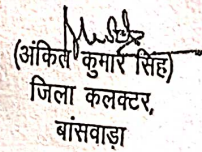 (अंकित कुमार सिंह)
जिला कलक्टर,
बांसवाड़ा